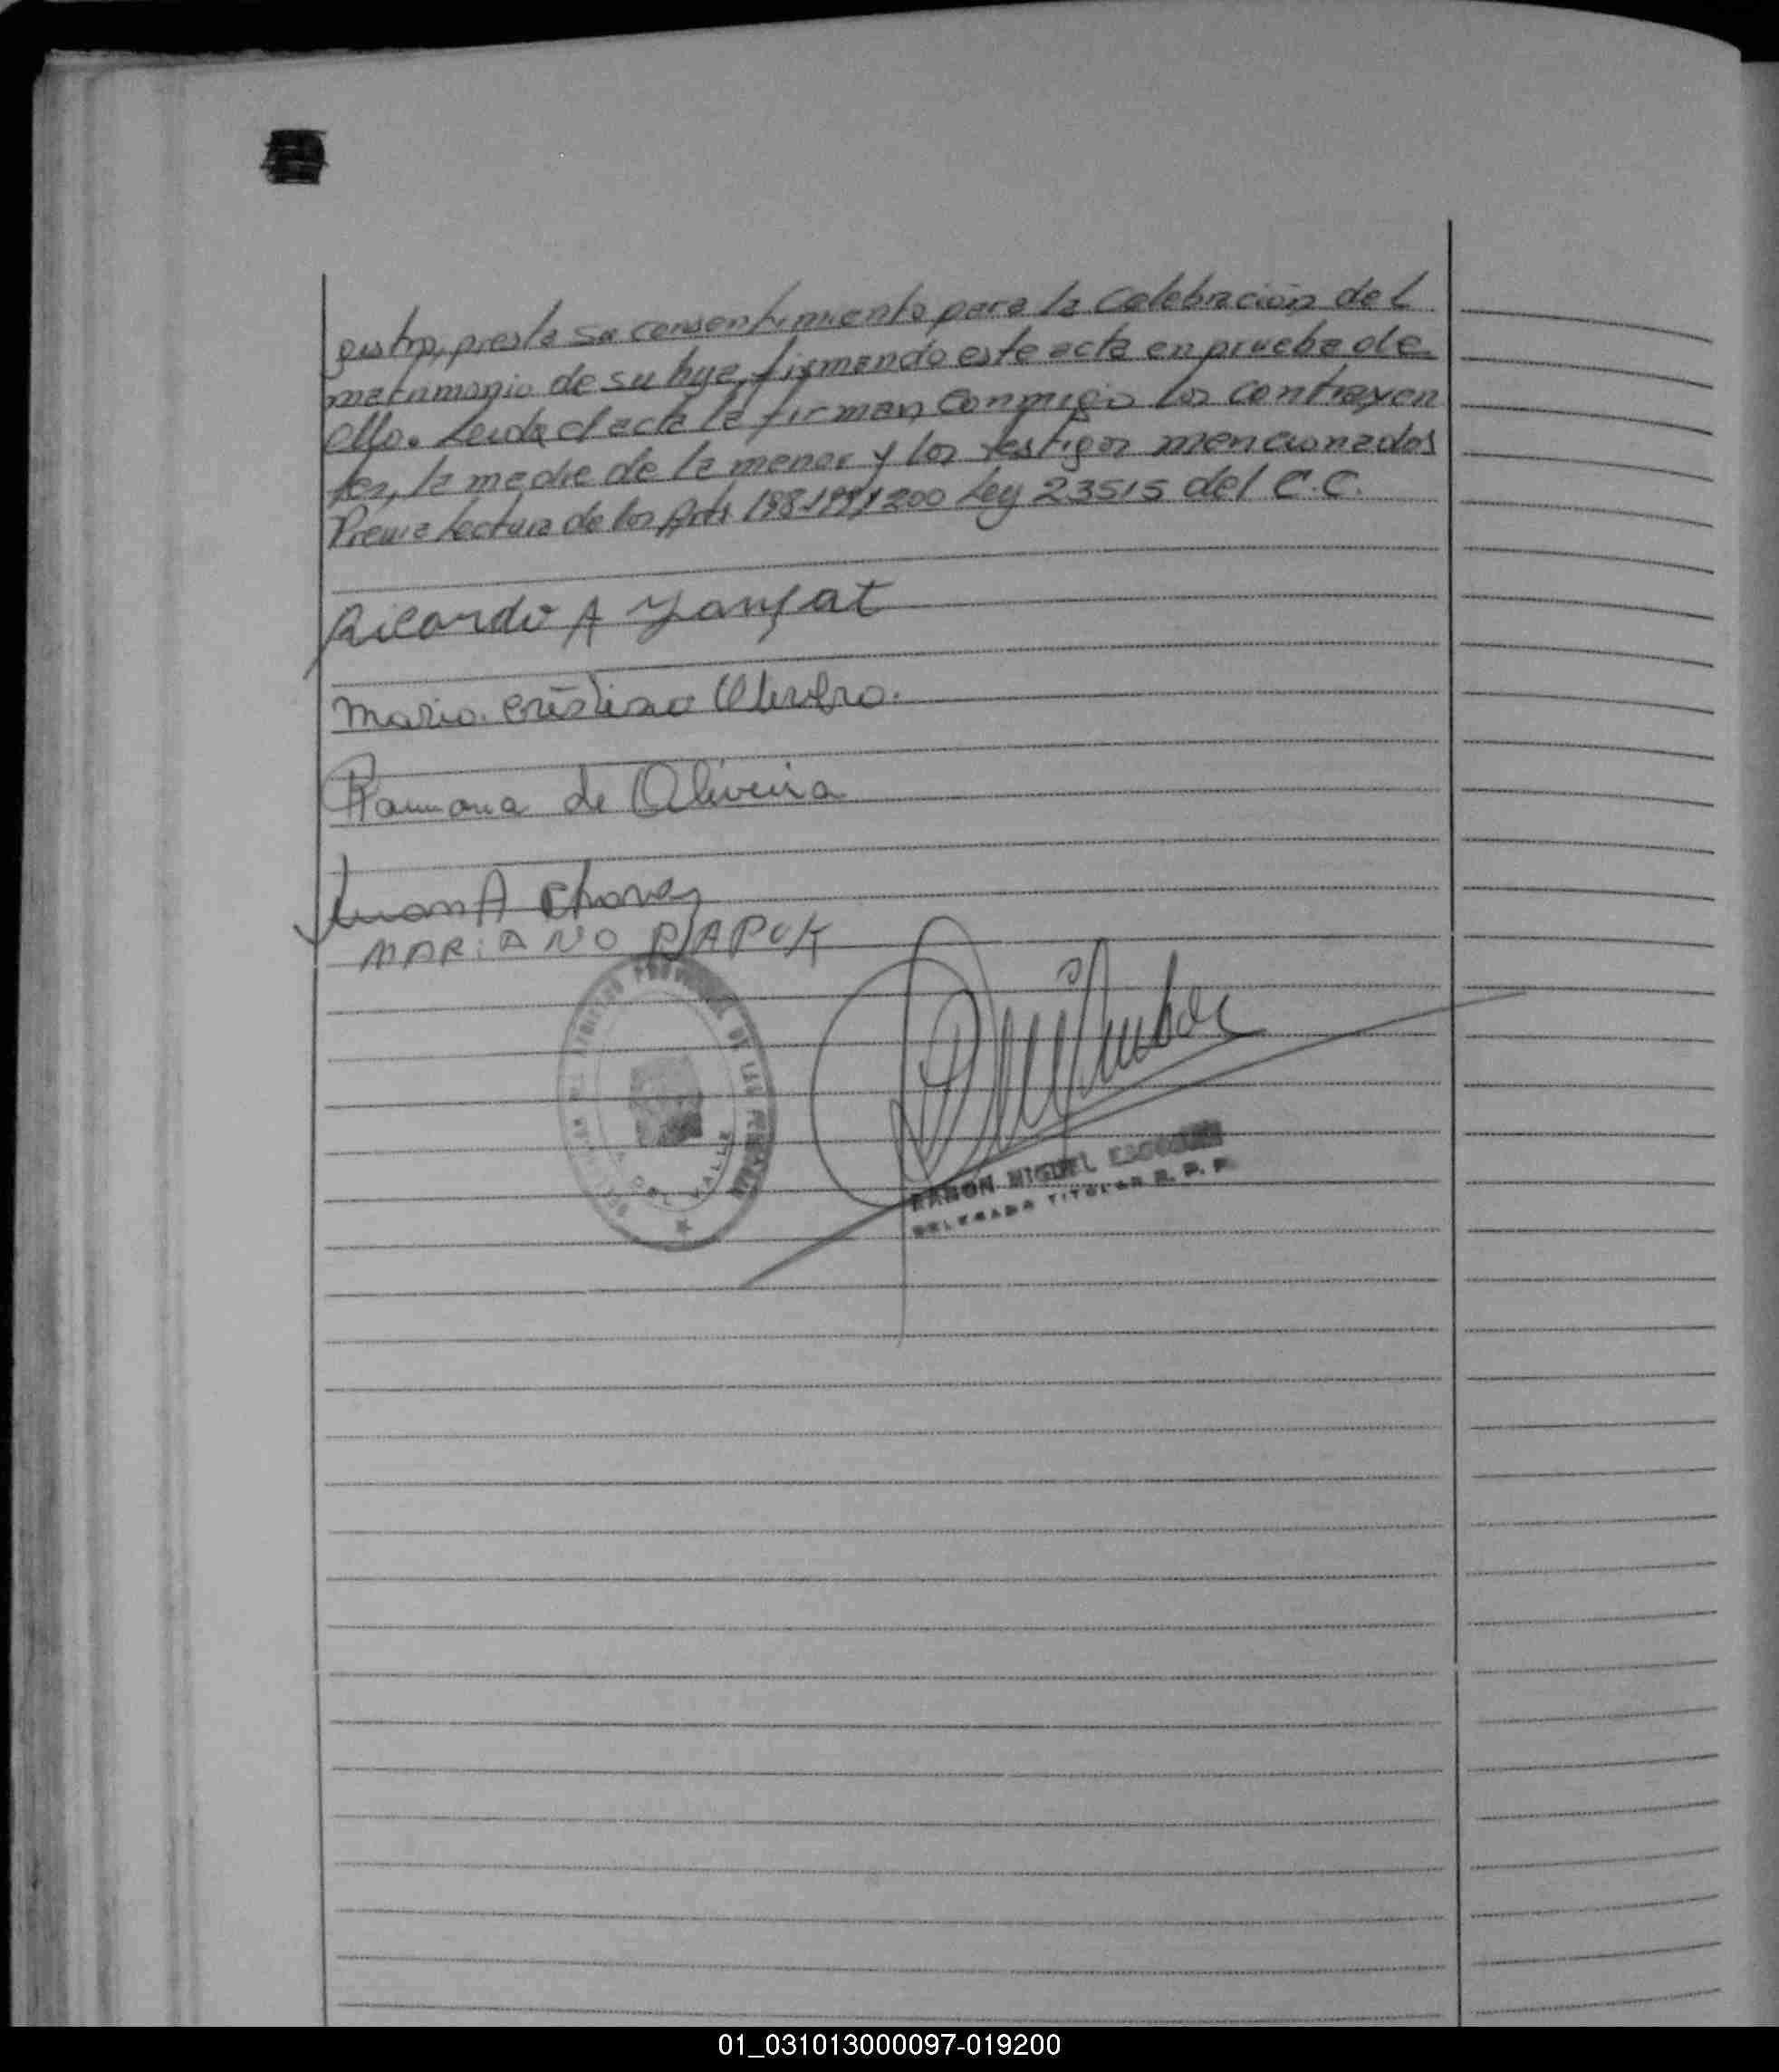 gistro, presta su consentimiento para la Celebración del
matrimonio de su hija, firmando este acta en prueba de
ello. Leida el acta la firman, Conmigo los contrayen
tes, la madre de la menor y los testigos mencionados
Previa Lectura de los Arts 198-199 y 200 Ley 23515 del C.C.
Ricardo A
Maria Cristina
Ramona de Oliveira
Juan A Chavez
MARIANO
PROVINCIAL DE LAS PERSONAS
DEL VALLE
RAMON MIGUEL
DELEGADO TITULAR R. P. P.
01_031013000097-019200